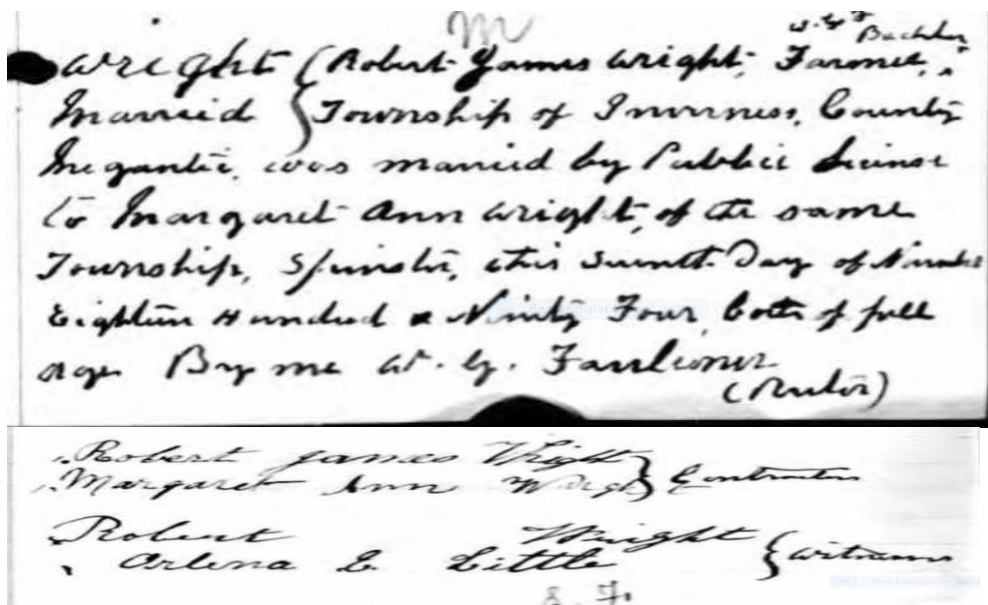 M
W. G. F.
Bachelor
Wright { Robert James Wright, Farmer,
Married Township of Inverness, County
Megantic, was married by Public License
to Margaret Ann Wright, of the same
Township, Spinster, this Seventh Day of November
Eighteen Hundred & Ninety Four, both of full
age By me W. G. Faulconer
(Rector)
Robert James Wright
Margaret Ann Wright } Contractors
Robert Wright
Arlena E. Little } Witnesses